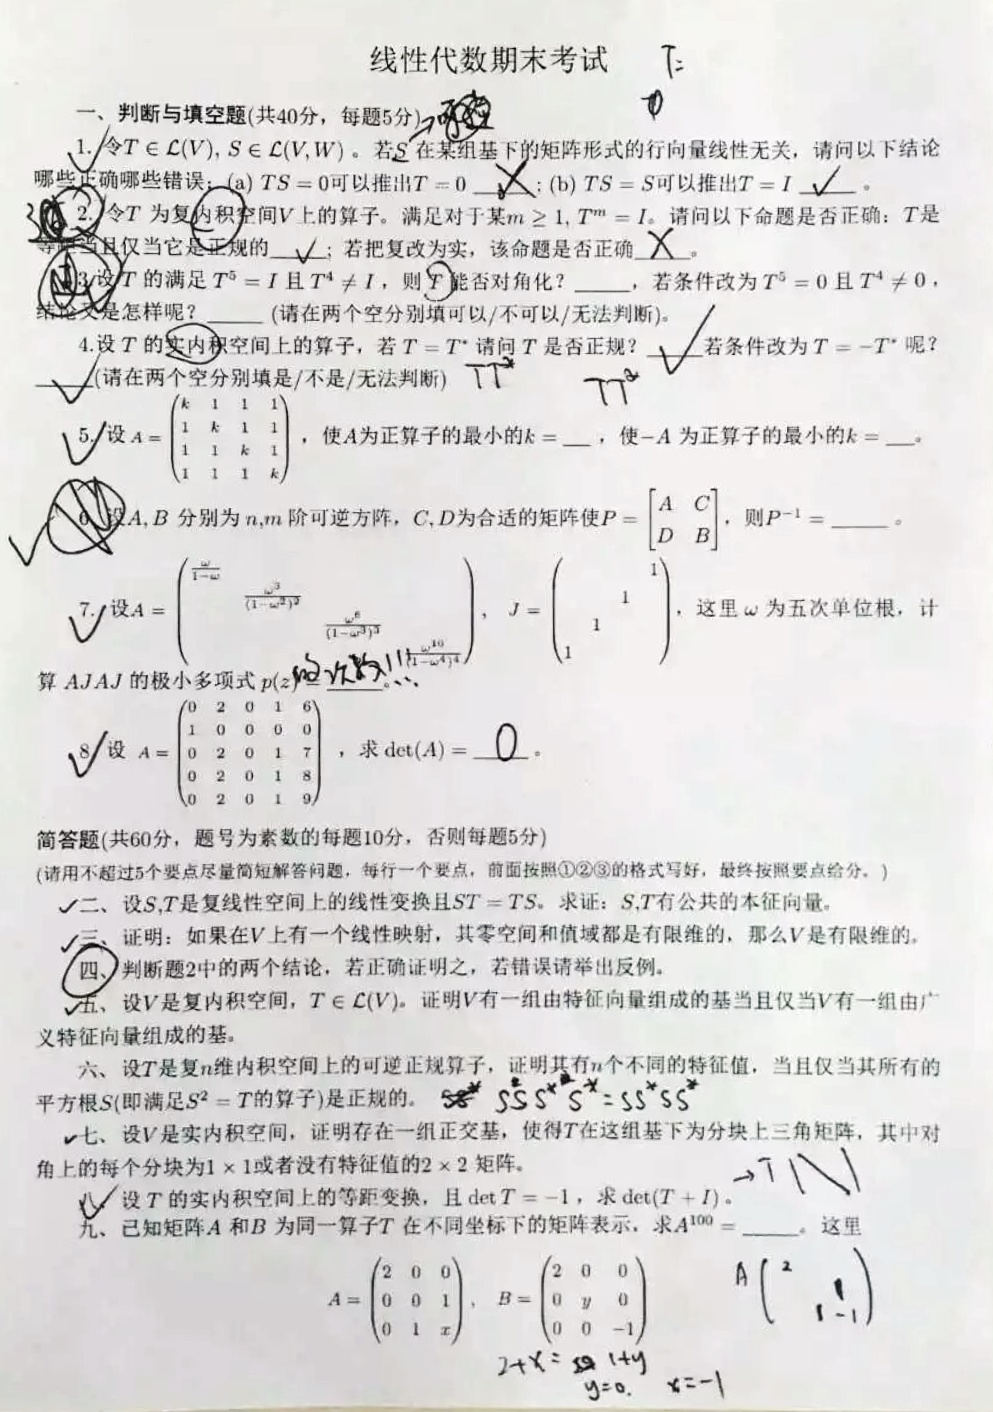 线性代数期末考试 T:
一、判断与填空题(共40分，每题5分)
1. 令T ∈ L(V), S ∈ L(V,W) 。若S 在某组基下的矩阵形式的行向量线性无关，请问以下结论
哪些正确哪些错误: (a) TS = 0可以推出T = 0 ✗; (b) TS = S可以推出T = I ✓ 。
2. 令T 为复内积空间V上的算子。满足对于某m ≥ 1, T^m = I。请问以下命题是否正确：T是
等距当且仅当它是正规的 ✓；若把复改为实，该命题是否正确 ✗。
3.设 T 的满足 T^5 = I 且 T^4 ≠ I，则 T 能否对角化？_____，若条件改为 T^5 = 0 且 T^4 ≠ 0，
结论又是怎样呢？_____ (请在两个空分别填可以/不可以/无法判断)。
4.设 T 的实内积空间上的算子，若 T = T* 请问 T 是否正规？ ✓ 若条件改为 T = −T* 呢？
✓ (请在两个空分别填是/不是/无法判断) TT* TT*
5. 设 A = (k 1 1 1
1 k 1 1
1 1 k 1
1 1 1 k) ，使A为正算子的最小的k = __ ，使−A 为正算子的最小的k = __。
6. 设A, B 分别为 n,m 阶可逆方阵，C, D为合适的矩阵使P = [A C
D B]，则P^−1 = _____ 。
7. 设A = (ω/(1−ω)
ω^3/(1−ω^2)^2
ω^6/(1−ω^3)^3
ω^10/(1−ω^4)^4) ， J = (1
1
1
1)，这里 ω 为五次单位根，计
算 AJAJ 的极小多项式 p(z) 的次数!!! = _____。
8 设 A = (0 2 0 1 6
1 0 0 0 0
0 2 0 1 7
0 2 0 1 8
0 2 0 1 9) ，求 det(A) = 0 。
简答题(共60分，题号为素数的每题10分，否则每题5分)
(请用不超过5个要点尽量简短解答问题，每行一个要点，前面按照①②③的格式写好，最终按照要点给分。)
✓二、设S,T是复线性空间上的线性变换且ST = TS。求证：S,T有公共的本征向量。
✓三、证明：如果在V上有一个线性映射，其零空间和值域都是有限维的，那么V是有限维的。
四、判断题2中的两个结论，若正确证明之，若错误请举出反例。
✓五、设V是复内积空间，T ∈ L(V)。证明V有一组由特征向量组成的基当且仅当V有一组由广
义特征向量组成的基。
六、设T是复n维内积空间上的可逆正规算子，证明其有n个不同的特征值，当且仅当其所有的
平方根S(即满足S^2 = T的算子)是正规的。 SSS*S* = SS*SS*
✓七、设V是实内积空间，证明存在一组正交基，使得T在这组基下为分块上三角矩阵，其中对
角上的每个分块为1 × 1或者没有特征值的2 × 2 矩阵。 →T
八、设 T 的实内积空间上的等距变换，且 det T = −1，求 det(T + I) 。
九、已知矩阵A 和B 为同一算子T 在不同坐标下的矩阵表示，求A^100 = _____。这里
A = (2 0 0
0 0 1
0 1 x) ， B = (2 0 0
0 y 0
0 0 −1) A (2
1
1 -1)
2+x = 1+y
y=0. x=-1